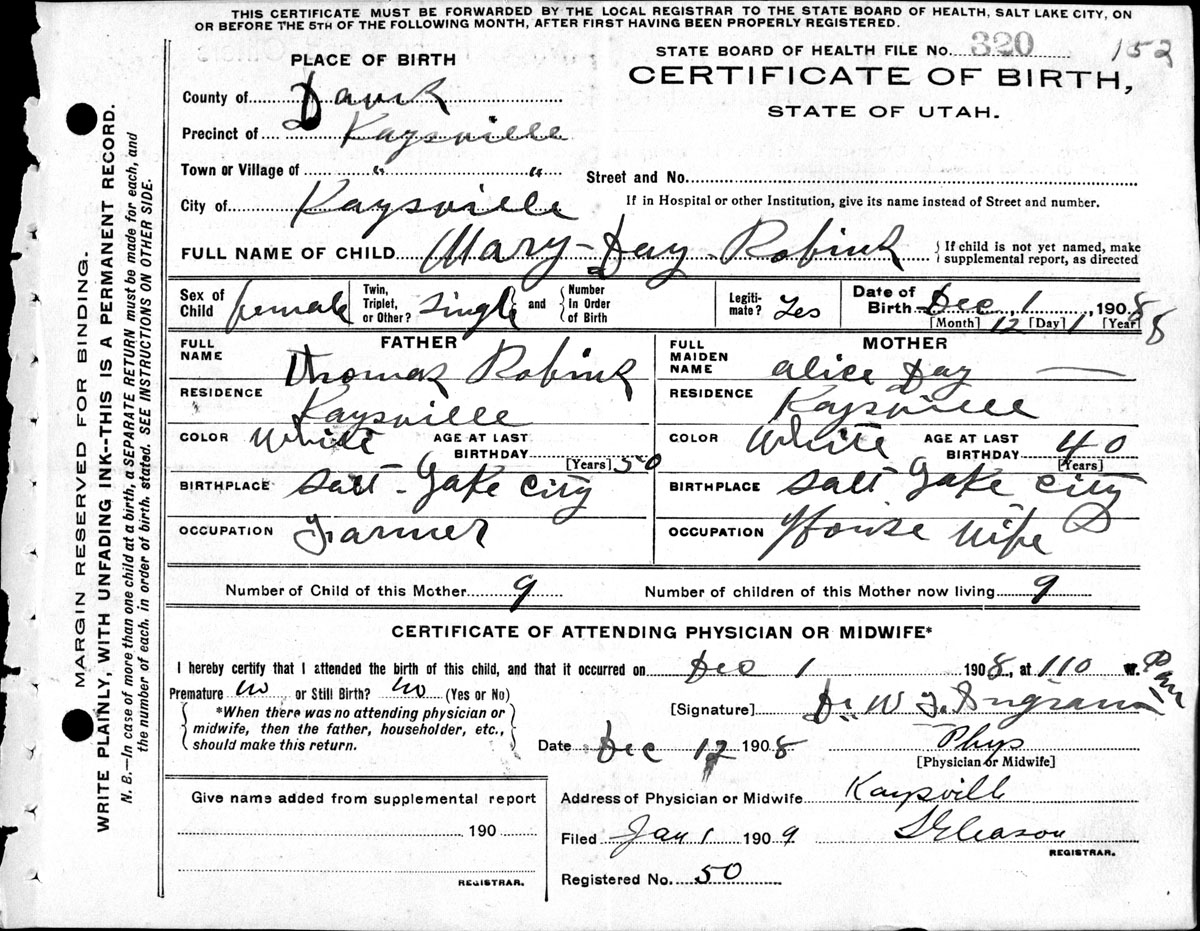 THIS CERTIFICATE MUST BE FORWARDED BY THE LOCAL REGISTRAR TO THE STATE BOARD OF HEALTH, SALT LAKE CITY, ON
OR BEFORE THE 5TH OF THE FOLLOWING MONTH, AFTER FIRST HAVING BEEN PROPERLY REGISTERED.
STATE BOARD OF HEALTH FILE NO. 320 152
PLACE OF BIRTH
CERTIFICATE OF BIRTH,
STATE OF UTAH.
County of Davis
Precinct of Kaysville
Town or Village of " "
Street and No.
City of Kaysville
If in Hospital or other Institution, give its name instead of Street and number.
FULL NAME OF CHILD Mary Day Robins
{If child is not yet named, make supplemental report, as directed
Sex of Child female Twin, Triplet, or Other? Single and {Number In Order of Birth Legitimate? Yes Date of Birth Dec 1, 1908
[Month] 12 [Day] 1 [Year] 8
FATHER
MOTHER
FULL NAME Thomas Robins
FULL MAIDEN NAME Alice Day
RESIDENCE Kaysville
RESIDENCE Kaysville
COLOR White AGE AT LAST BIRTHDAY [Years] 50
COLOR White AGE AT LAST BIRTHDAY 40 [Years]
BIRTHPLACE Salt Lake City
BIRTHPLACE Salt Lake City
OCCUPATION Farmer
OCCUPATION House Wife
Number of Child of this Mother 9 Number of children of this Mother now living 9
CERTIFICATE OF ATTENDING PHYSICIAN OR MIDWIFE*
I hereby certify that I attended the birth of this child, and that it occurred on Dec 1 1908, at 110 M. PM
Premature No or Still Birth? No (Yes or No)
[Signature] Dr. W. F. Ingram
{*When there was no attending physician or midwife, then the father, householder, etc., should make this return.}
Date Dec 12 1908 Phys
[Physician or Midwife]
Give name added from supplemental report
190
REGISTRAR.
Address of Physician or Midwife Kaysville
Filed Jan 1 1909 Gleason
REGISTRAR.
Registered No. 50
MARGIN RESERVED FOR BINDING.
WRITE PLAINLY, WITH UNFADING INK--THIS IS A PERMANENT RECORD.
N. B.—In case of more than one child at a birth, a SEPARATE RETURN must be made for each, and
the number of each, in order of birth, stated. SEE INSTRUCTIONS ON OTHER SIDE.